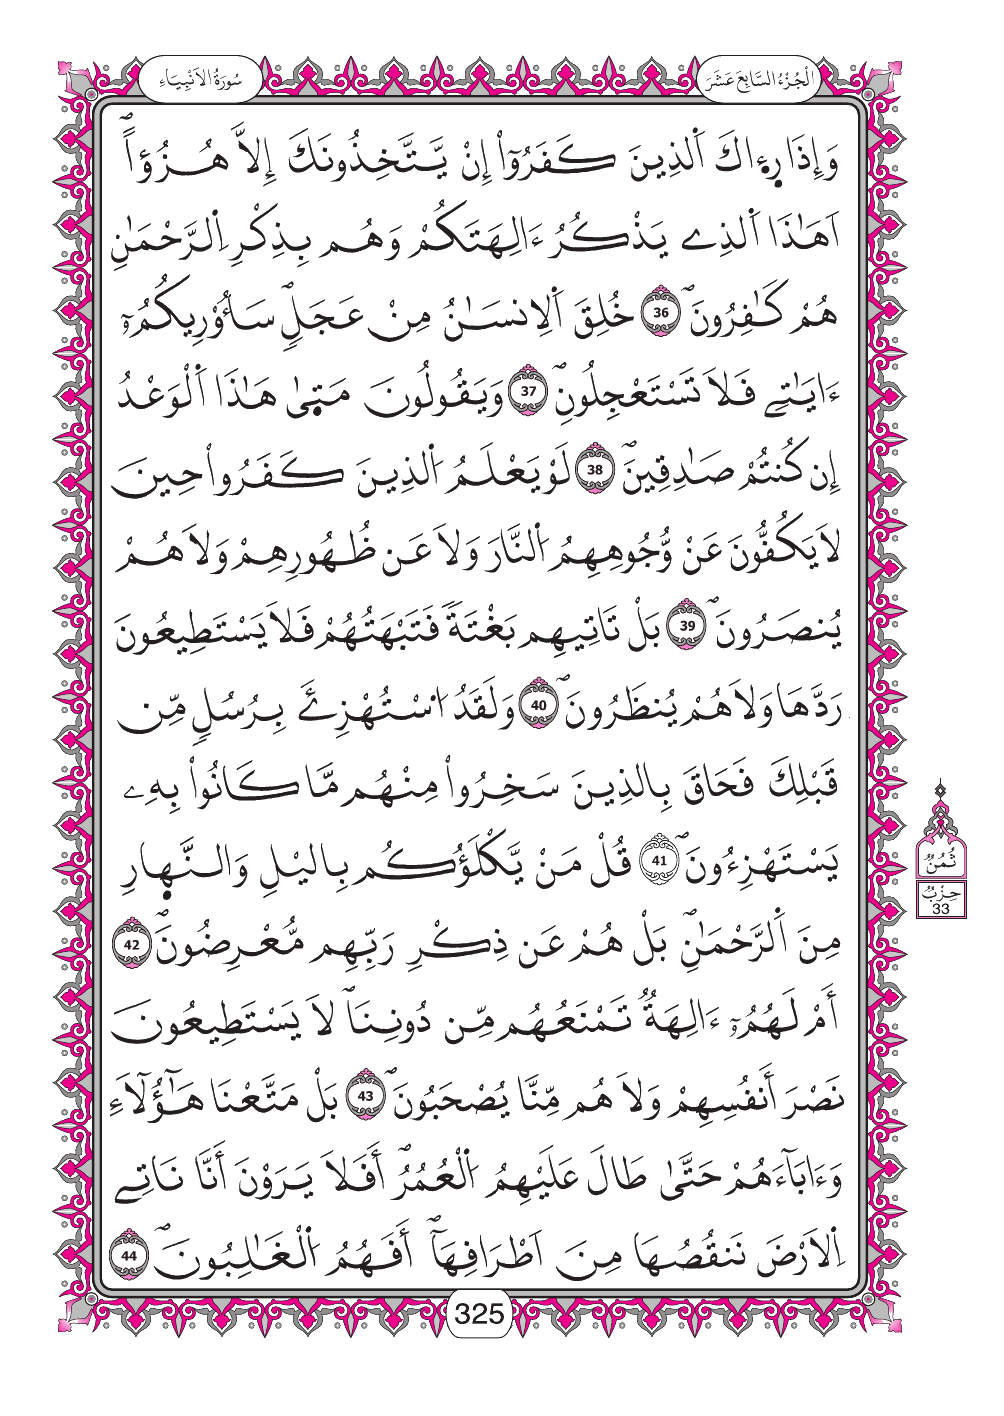 الْجُزْءُ السَّابِعَ عَشَرَ
سُورَةُ الَانْبِيَاءِ
وَإِذَا رِءَاكَ اَ۬لذِينَ كَفَرُوٓاْ إِنْ يَّتَّخِذُونَكَ إِلَّا هُزُؤاًۖ
اَهَٰذَا اَ۬لذِے يَذْكُرُ ءَالِهَتَكُمْ وَهُم بِذِكْرِ اِ۬لرَّحْمَٰنِ
هُمْ كَٰفِرُونَۖ 36 خُلِقَ اَ۬لِانسَٰنُ مِنْ عَجَلٖۖ سَأُوْرِيكُمُۥٓ
ءَايَٰتِے فَلَا تَسْتَعْجِلُونِۖ 37 وَيَقُولُونَ مَتۭيٰ هَٰذَا اَ۬لْوَعْدُ
إِن كُنتُمْ صَٰدِقِينَۖ 38 لَوْ يَعْلَمُ اُ۬لذِينَ كَفَرُواْ حِينَ
لَا يَكُفُّونَ عَنْ وُّجُوهِهِمُ اُ۬لنَّارَ وَلَا عَن ظُهُورِهِمْ وَلَا هُمْ
يُنصَرُونَۖ 39 بَلْ تَاتِيهِم بَغْتَةٗ فَتَبْهَتُهُمْ فَلَا يَسْتَطِيعُونَ
رَدَّهَا وَلَا هُمْ يُنظَرُونَۖ 40 وَلَقَدُ اُ۟سْتُهْزِئَ بِرُسُلٖ مِّن
قَبْلِكَ فَحَاقَ بِالذِينَ سَخِرُواْ مِنْهُم مَّا كَانُواْ بِهِۦ
يَسْتَهْزِءُونَۖ 41 قُلْ مَنْ يَّكْلَؤُكُم بِاليْلِ وَالنَّهٰ۪ارِ
مِنَ اَ۬لرَّحْمَٰنِۖ بَلْ هُمْ عَن ذِكْرِ رَبِّهِم مُّعْرِضُونَۖ 42
أَمْ لَهُمُۥٓ ءَالِهَةٞ تَمْنَعُهُم مِّن دُونِنَاۖ لَا يَسْتَطِيعُونَ
نَصْرَ أَنفُسِهِمْ وَلَا هُم مِّنَّا يُصْحَبُونَۖ 43 بَلْ مَتَّعْنَا هَٰٓؤُلَآءِ
وَءَابَآءَهُمْ حَتَّىٰ طَالَ عَلَيْهِمُ اُ۬لْعُمُرُۖ أَفَلَا يَرَوْنَ أَنَّا نَاتِے
اِ۬لَارْضَ نَنقُصُهَا مِنَ اَطْرَافِهَآۖ أَفَهُمُ اُ۬لْغَٰلِبُونَۖ 44
ثُمُنٌ
حِزْبٌ
33
325